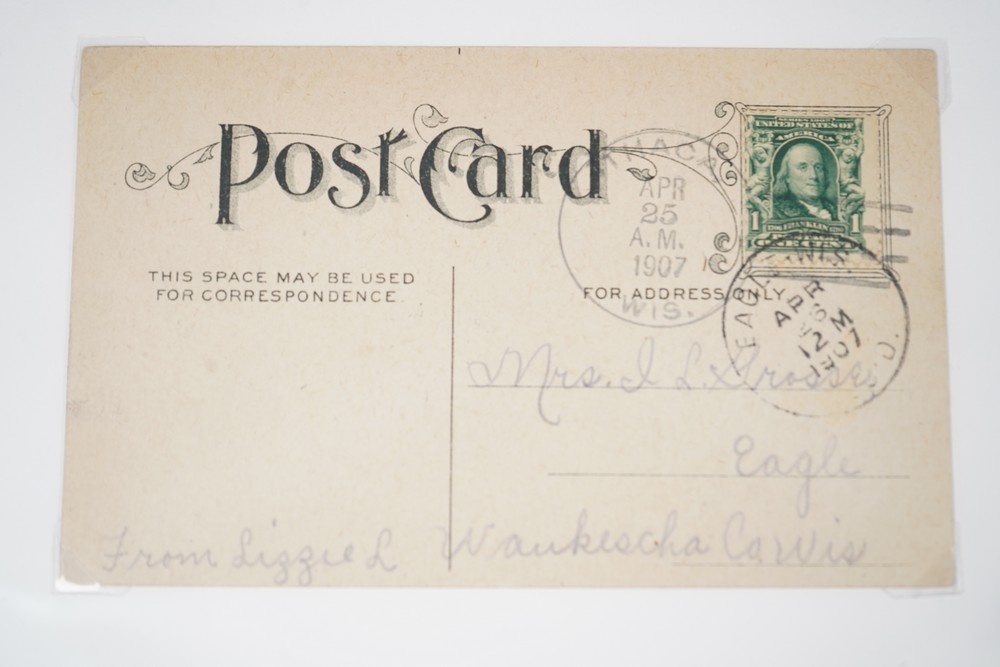 Post Card
THIS SPACE MAY BE USED
FOR CORRESPONDENCE.
FOR ADDRESS ONLY
SERIES 1902
UNITED STATES OF
AMERICA
1 FRANKLIN 1
APR
25
A.M.
1907
WIS.
EAGLE, WIS.
APR
12 M
1907
Mrs. I L
Eagle
Waukescha Co Wis
From Lizzie L